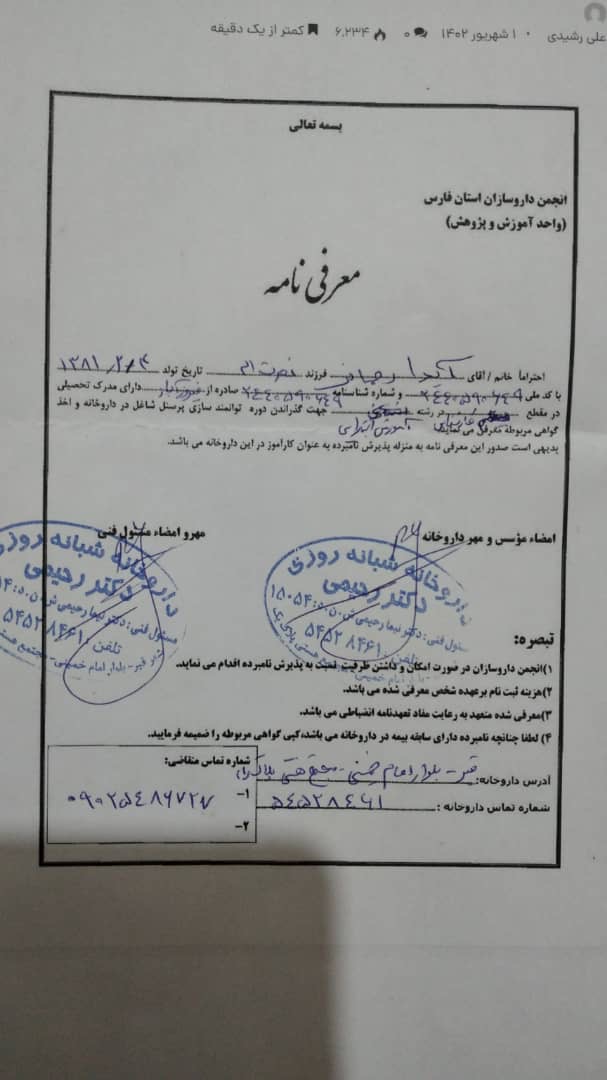 علی رشیدی • ۱ شهریور ۱۴۰۲ ۰ ۶,۲۳۴ کمتر از یک دقیقه
بسمه تعالی
انجمن داروسازان استان فارس
(واحد آموزش و پژوهش)
معرفی نامه
احتراماً خانم / آقای فرزند تاریخ تولد ۱۳۸۱/۲/۳
با کد ملی و شماره شناسنامه صادره از دارای مدرک تحصیلی
در مقطع در رشته جهت گذراندن دوره توانمند سازی پرسنل شاغل در داروخانه و اخذ
گواهی مربوطه معرفی می نماید. آموزش ابتدایی
بدیهی است صدور این معرفی نامه به منزله پذیرش نامبرده به عنوان کارآموز در این داروخانه می باشد.
امضاء مؤسس و مهر داروخانه
مهرو امضاء مسئول فنی
داروخانه شبانه روزی
دکتر رحیمی
مسئول فنی: دکتر نیما رحیمی
۵۴۵۲۸۴۶۱
داروخانه شبانه روزی
دکتر رحیمی
مسئول فنی: دکتر نیما رحیمی
تلفن: ۵۴۵۲۸۴۶۱
قیر - بلوار امام خمینی - مجتمع
تبصره:
۱)انجمن داروسازان در صورت امکان و داشتن ظرفیت نسبت به پذیرش نامبرده اقدام می نماید.
۲)هزینه ثبت نام برعهده شخص معرفی شده می باشد.
۳)معرفی شده متعهد به رعایت مفاد تعهدنامه انضباطی می باشد.
۴) لطفا چنانچه نامبرده دارای سابقه بیمه در داروخانه می باشد،کپی گواهی مربوطه را ضمیمه فرمایید.
آدرس داروخانه: قیر - بلوار امام خمینی - مجتمع
شماره تماس داروخانه : ۵۴۵۲۸۴۶۱
شماره تماس متقاضی:
۱- ۰۹۰۲۵۴۸۶۷۲۷
۲-